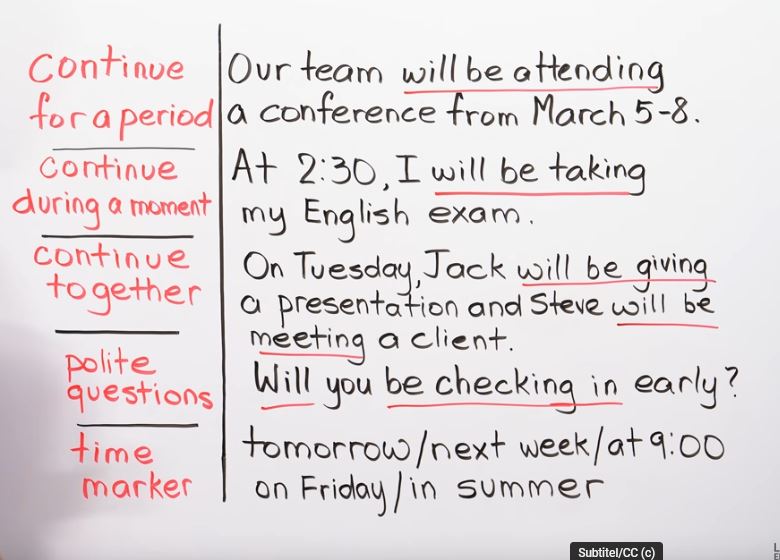 continue
for a period
Our team will be attending
a conference from March 5-8.
continue
during a moment
At 2:30, I will be taking
my English exam.
continue
together
On Tuesday, Jack will be giving
a presentation and Steve will be
meeting a client.
polite
questions
Will you be checking in early?
time
marker
tomorrow/next week/at 9:00
on Friday/in summer
Subtitel/CC (c)